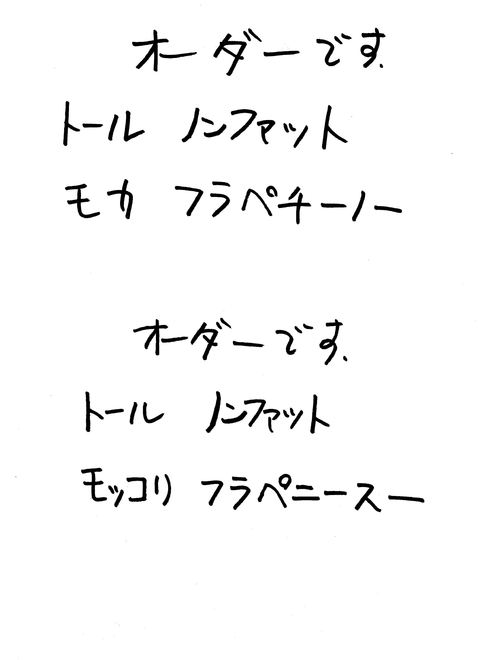 オーダーです.
トール ノンファット
モカ フラペチーノー
オーダーです.
トール ノンファット
モッコリ フラペニースー